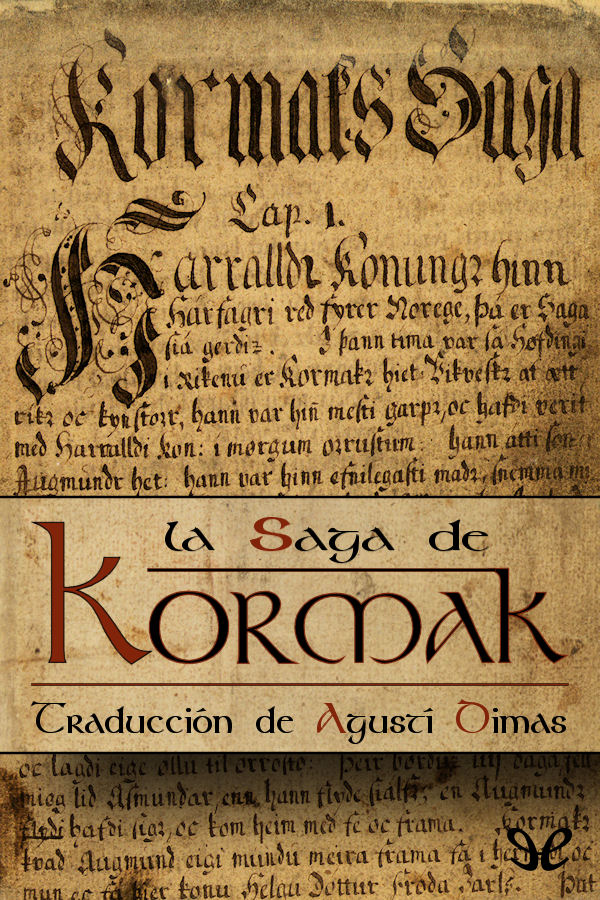 Kormaks Saga
Cap. 1.
Harralldr Konungr hinn
Harfagri red fyrer Norege, Þa er Saga
sia gerdiz. I þann tima var sa Hofdingi
i Rikenu er Kormakr hiet Vikveskr at ætt
rikr oc kynstorr, hann var hiñ mesti garpr, oc hafdi verit
med Harralldi Kon: i morgum orrustum. hann atti son
Augmundr het: hann var hinn efnilegasti madr, snemma
la Saga de
Kormak
Traducción de Agustí Dimas
oc lagdi eige ollu til orrosto: Þeir borduz
mieg lid Asmundar, enn hann flyde sialfr, en Augmundr
flydi hafdi sigr, oc kom heim med fe oc frama. Kormakr
kvad Augmund eigi mundu meira frama fa i
mun ec fa þier konu Helgu Dottur Froda Jarls. Þat